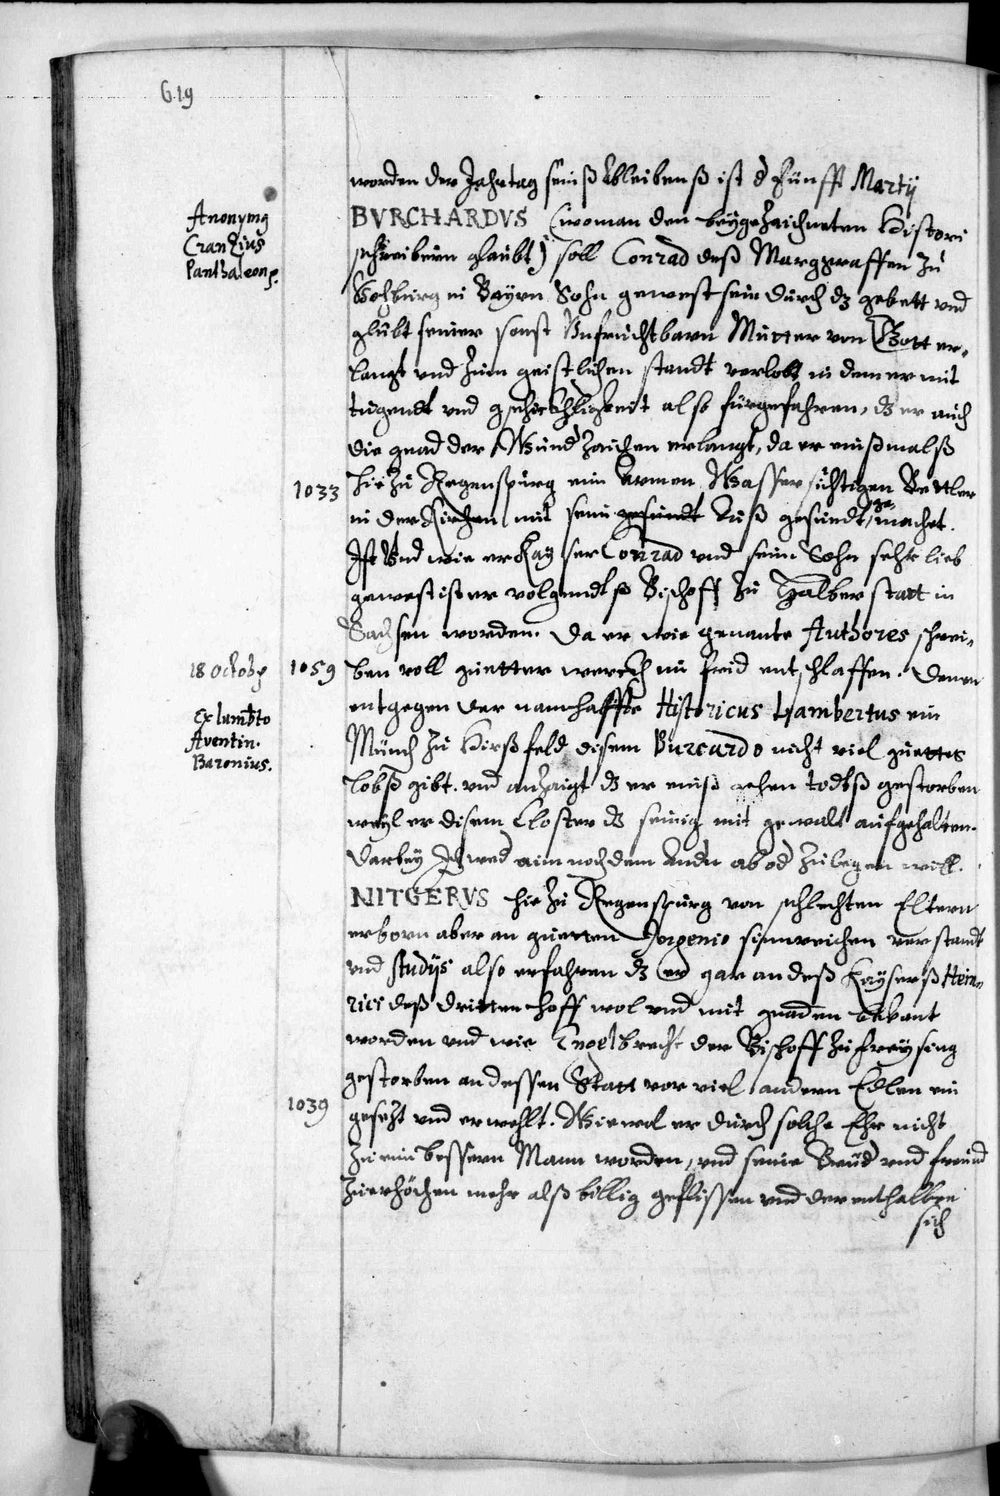 619
worden der Jahrtag seinß Ableibenß ist d fünfft Martÿ
Anonymg
BVRCHARDVS (woman den beygezaichneten Histori
Cranzius
schreibern glaubt) soll Conrad deß Marggraffen zu
Panthaleong.
Vohburg in Bayrn Sohn gewest sein durch dz gebett vnd
glübt seiner sonst Vnfruchtbarn Mutter von Gott er-
langt vnd zum geistlichen standt verlobt in dem er mit
tugendt vnd gschickhligkeit also fürgefahren, dz er auch
die gnad der Wund zaichen erlangt, da er einßmalß
1033
hie zu Regenspurg ein armen Wassersichtigen Bettler
in der Kirchen mit sein gesundt Kuß gesundt gemachet.
Ist Vnd wie er Kayser Conrad vnd seim Sohn sehr lieb
gewest ist er volgendtß Bischoff zu Halberstatt in
Sachsen worden. Da er wie genante Authores schrei-
18 Octobg
1059
ben voll guetter werckh im frid entschlaffen. Denen
Ex lambto
entgegen der namhaffte Historicus Lambertus ein
Aventin.
Münch zu Hirßfeld disem Burcardo nicht viel guettes
Baronius.
Lobß gibt. vnd anzaigt dz er einß gehen todtß gestorben
weyl er disem Closter dz seinig mit gewalt aufgehalten.
Darbey Ich wed aim noch dem Andn ab od zulegen will.
NITGERVS hie zu Regenspurg von schlechten Eltern
erborn aber an guetten Jngenio sinnreichen verstandt
vnd studÿs also erfahren dz er gar an deß Kaysersß Hein-
rici deß dritten hoff wol vnd mit gnaden bekant
worden vnd wie Engelbrecht der Bischoff zu freysing
gestorben an dessen Statt vor viel andern Edlen ein
1039
gesezt vnd erwehlt. Wiewol er durch solche Ehr nicht
zu eim bessern Mann worden, vnd seine Brüd vnd freund
zuerhöchen mehr alß billig geflissen vnd derenthalben
sich